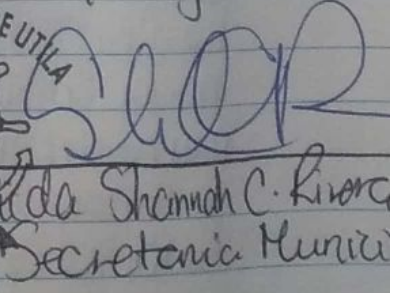 E UTILA
lda Shannah C. Rivera
Secretaria Munici